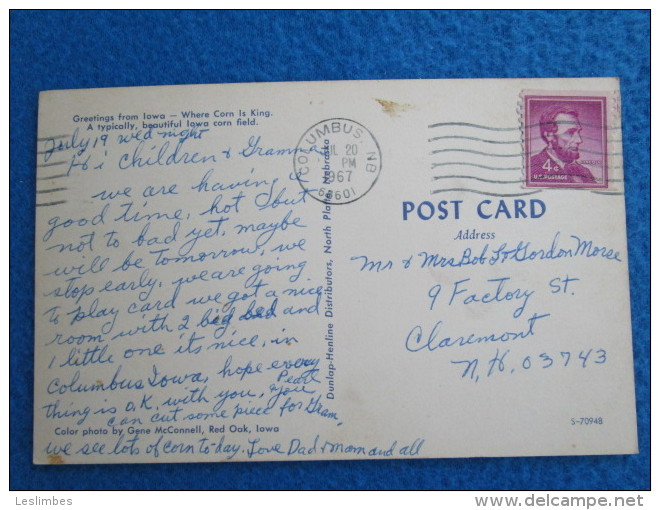 Greetings from Iowa — Where Corn Is King.
A typically, beautiful Iowa corn field.
July 19 wed night
Hi Children & Gramm
we are having a
good time, hot but
not to bad yet, maybe
will be tomorrow, we
stop early, we are going
to play card we got a nice
room with 2 big bed and
1 little one its nice, in
Columbus Iowa, hope every
thing is o.K. with you, Pearl you
can cut some piece for Gram,
Color photo by Gene McConnell, Red Oak, Iowa
we see lots of corn to day. Love Dad & Mam and all
Dunlap-Henline Distributors, North Platte, Nebraska
COLUMBUS NB
JUL 20
PM
1967
68601
4¢
U.S. POSTAGE
POST CARD
Address
Mr & Mrs Bob Gordon Morse
9 Factory St.
Claremont
N.H. 03743
S-70948
Leslimbes
www.delcampe.net